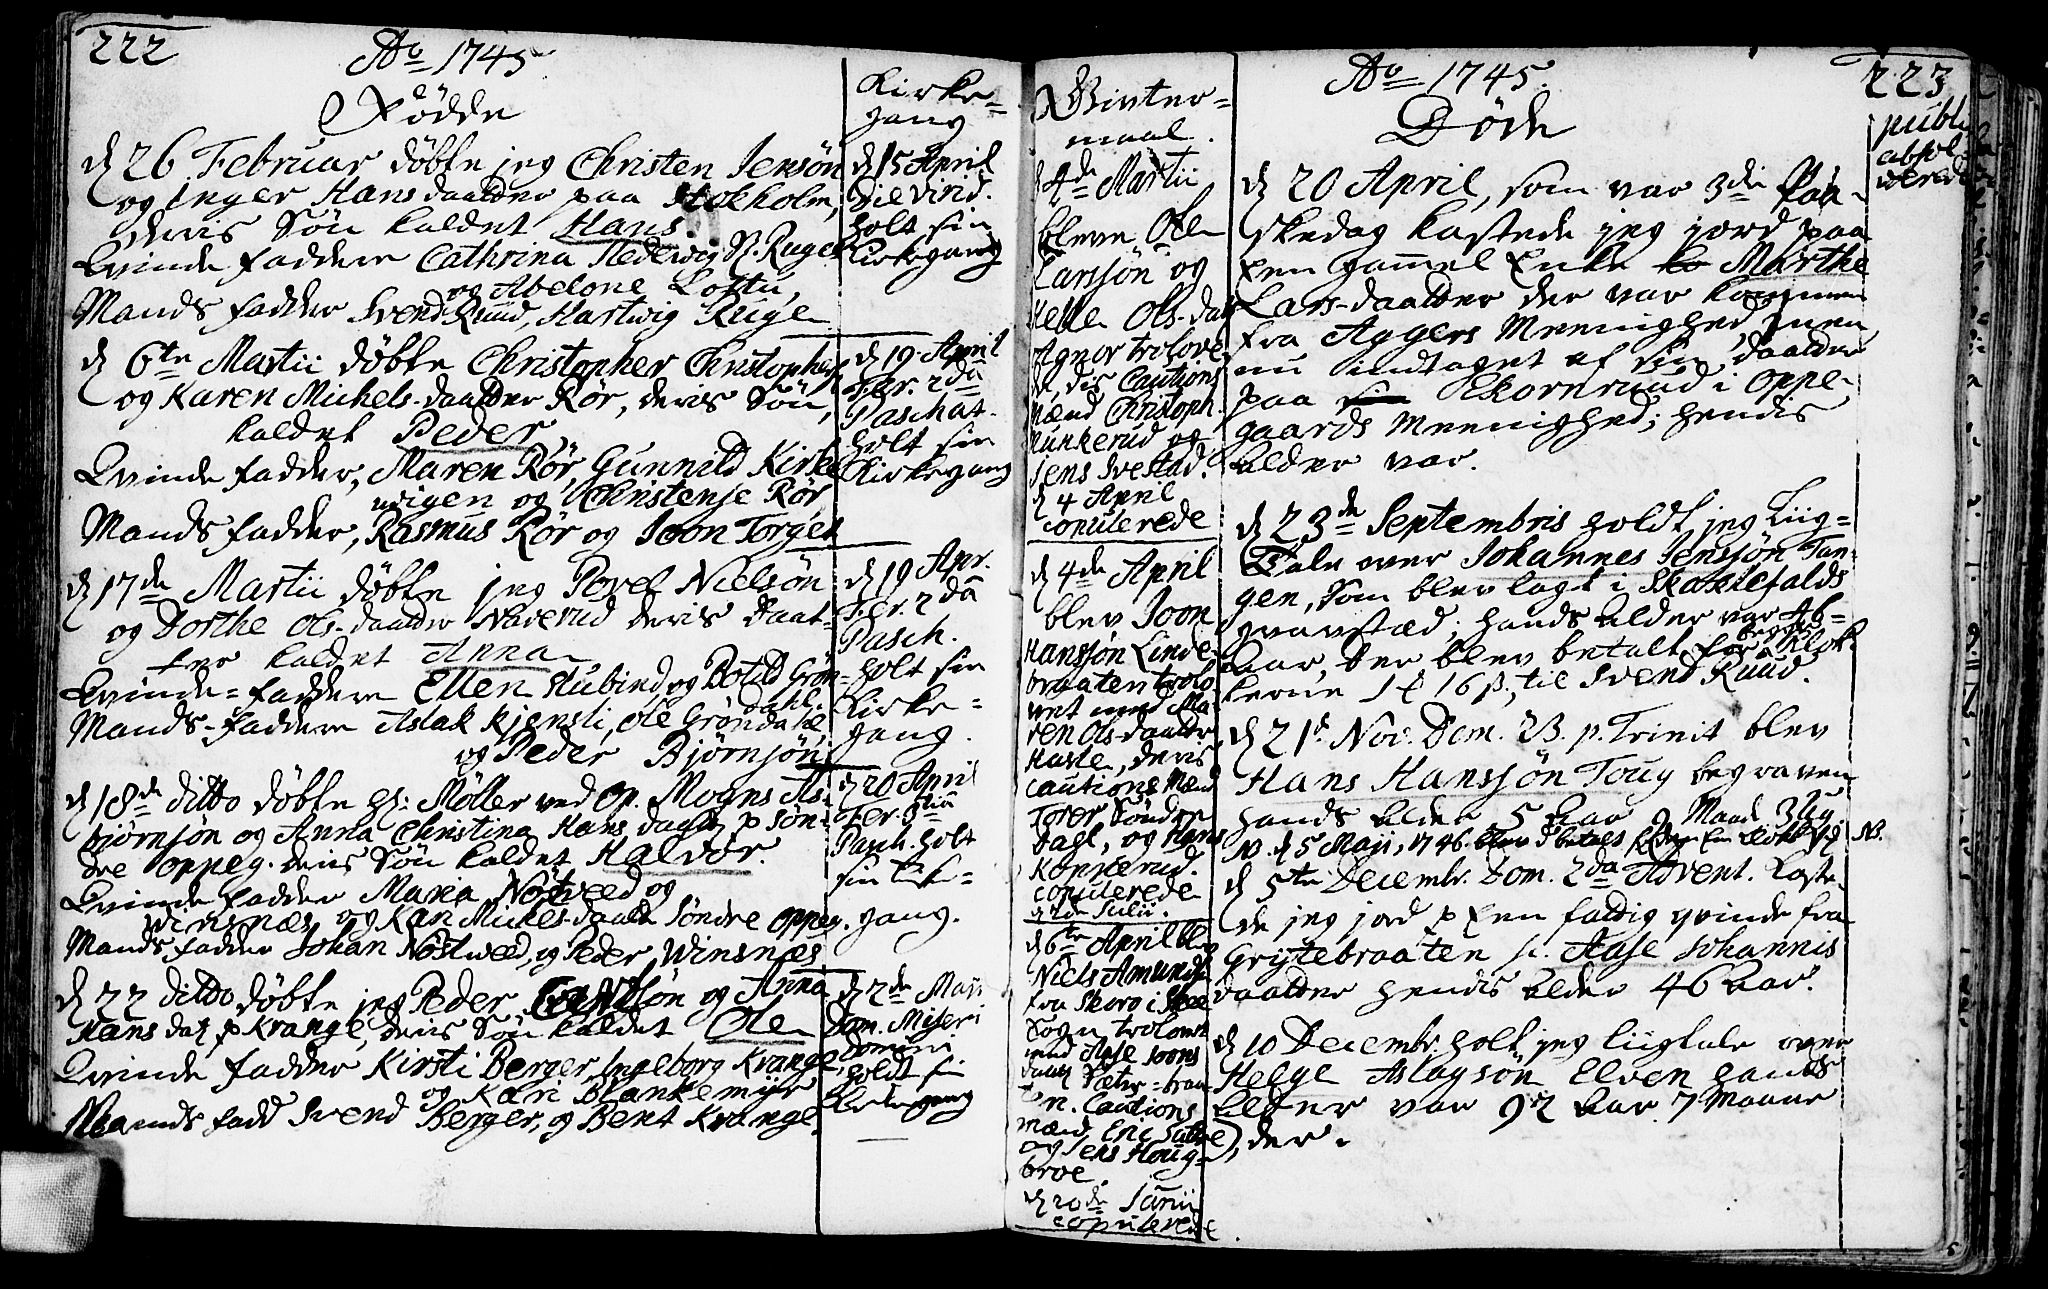 222
Ao 1745
Fødde
d 26 Februar døbte jeg Christen Jensøn
og Inger Hansdaatter paa Stokholm,
deris Søn kaldet Hans.
Qvinde faddere Cathrina Hedewig Sl. Ruges
og Abelone Loftu,
Mands fadder Svend Ruud, Hartwig Ruge
d 6te Martii døbte Christopher Christophers
og Karen Michels-daatter Rør, deris Søn,
kaldet Peder
Qvinde fadder, Maren Rør, Gunnild Kirke
og Christense Rør
Mands fadder, Rasmus Rør og Joon Torget
d 17de Martii døbte jeg Povel Nielsøn
og Dorthe Ols-daatter Naverud deris Daat-
ter kaldet Anna
Qvinde-faddere Ellen Stubind, og Botild Grøn-
dahl.
Mands-faddere Aslak Kjensli, Ole Grøndahl
og Peder Bjørnsøn
d 18de ditto døbte Hr: Møller ved Op. Mogns As-
bjørnsøn og Anna Christina Hans dagtr p Søn-
dre oppeg. deris Søn kaldet Halvor.
Qvinde fadder Maria Nøstveed og
Winsnæs og Kari Mickels-daatt Søndre oppeg.
Mands fadder Johan Nøstweed, og Peder Winsnæs
d 22 ditto døbte jeg Peder og Anna
Hans dat p Krange, deris Søn kaldet Ole
Qvinde fadder Kirsti Berger, Ingeborg Krange
og Kari Blankemyr
Mands fadd Svend Berger, og Bent Krange.
Kirke-
gang
d 15 April
holt sin
Kirkegang
d 19 April
Fer. 2da
Paschat.
holt sin
Kirkegang
d 19 Apr.
Fer. 2da
Pasch.
holt sin
Kirke-
gang.
d 20 April
Fer. 3tia
Pasch. holt
sin
gang.
d 2de Maji
Dom. Miseri
Domini
holdt sin
Kirkegang
Winter-
maal.
d 4de Martii
bleve Ole
Larssøn og
Helle Ols-dat
Agnor trolove
de, dis Cautions
mænd Christoph.
Munkerud og
Jens Svestad.
d 4 April
copulerede
d 4de April
blev Joon
Hanssøn Linde-
braaten trolo
vet med Ma-
ren Ols-daatter
Haste, deris
cautions Mænd
Torer Søndre
Dahl, og Hans
Konnerud.
copulerede
d Julii.
d 6te April bl.
Niels Amunds.
fra Skoro i Skee
Sogn trolovet
med Aase Joons
daat Sæter-braa
ten. Cautions
mænd Eric Sætre
og Jens Houg-
broe.
d 20de Junii
copulerede.
Ao 1745.
223
Døde
publ.
absol
verede
d 20 April, som var 3die Paa-
skedag kastede jeg jord paa
Een gammel Enke Marthe
Lars-daatter der var kommen
fra Aggers Meenighed, men
nu indtaget af sin daatter
paa Ekornrud i oppe-
gaards Meenighed; hendis
Alder var.
d 23de Septembris holdt jeg Liig-
Tale over Johannes Jenssøn Tan-
gen, Som blev lagt i Skokkefalds
gravstæd; hands alder var 46-
Aar, Der blev betalt for begge Klok-
kerne 1 ₰ 16 β, til Svend Ruud.
d 21de Nov. Dom. 23. p. Trinit blev
Hans Hanssøn Toug begraven
hands alder 5 Aar 9 Maan. 3 Ug.
N. d 5 Maji, 1746 blev betalt
NB.
d 5te Decembr. Dom. 2da Advent. Kaste-
de jeg jord p Een fattig qvinde fra
Grytebraaten n. Aase Johannis
daatter hendis alder 46 Aar.
d 10 Decembr. holt jeg liigtale over
Helge Aslagsøn Elven hands
alder var 92 Aar 7 Maane
der.